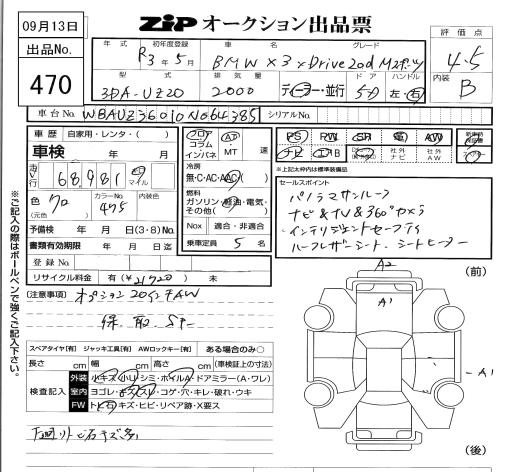 09月13日
ZIP オークション出品票
出品No.
470
年式 初年度登録 車名 グレード
R3年5月 BMW X3 xDrive20d Mスポーツ
評価点
4.5
内装
B
型式 排気量 ドア ハンドル
3DA-UZ20 2000 ディーラー・並行 5D 左・右
車台No. WBAUZ36010N064385 シリアルNo.
車歴 自家用・レンタ・( )
車検 年 月
走行 68,981 マイル
色 クロ カラーNo. 475
(元色)
予備検 年 月 日(3・8)No.
書類有効期限 年 月 日迄
登録No.
リサイクル料金 有(¥21720) 未
フロア コラム インパネ AT・MT 速
冷房
無・C・AC・AAC
燃料
ガソリン・軽油・電気・その他( )
Nox 適合・非適合
乗車定員 5名
PS PW SR AW
社外ナビ 社外AW
※上記太枠内は標準装備品
セールスポイント
パノラマサンルーフ
ナビ&TV&360°カメラ
インテリジェントセーフティ
ハーフレザーシート シートヒーター
(注意事項) オプション20インチAW
保 取 Sキー
スペアタイヤ[有] ジャッキ工具[有] AWロックキー[有] ある場合のみ○
長さ cm 幅 cm 高さ cm (車検証上の寸法)
検査記入
外装 小キズ・小U・シミ・ホイルA・ドアミラー(A・ワレ)
室内 ヨゴレ・キズ・スレ・コゲ・穴・キレ・破れ・ウキ
FW トビ石・キズ・ヒビ・リペア跡・X要ス
下廻リトビ石キズ多
※ご記入の際はボールペンで強くご記入下さい。
A2
(前)
A1
A1
(後)